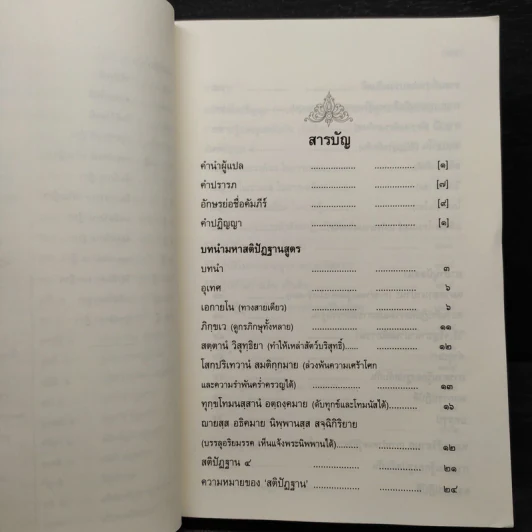 สารบัญ
คำนำผู้แปล .................. ............... [๑]
คำปรารภ .................. ............... [๗]
อักษรย่อชื่อคัมภีร์ .................. ............... [๙]
คำปฏิญญา .................. ............... [๑]
บทนำมหาสติปัฏฐานสูตร
บทนำ .................. ............... ๓
อุเทศ .................. ............... ๖
เอกายโน (ทางสายเดียว) .................. ............... ๖
ภิกฺขเว (ดูกรภิกษุทั้งหลาย) .................. ............... ๑๑
สตฺตานํ วิสุทฺธิยา (ทำให้เหล่าสัตว์บริสุทธิ์)...... ............... ๑๒
โสกปริเทวานํ สมติกฺกมาย (ล่วงพ้นความเศร้าโศก
และความรำพันคร่ำครวญได้) .................. ............... ๑๓
ทุกฺขโทมนสฺสานํ อตฺถงฺคมาย (ดับทุกข์และโทมนัสได้)........... ๑๖
ญายสฺส อธิคมาย นิพฺพานสฺส สจฺฉิกิริยาย
(บรรลุอริยมรรค เห็นแจ้งพระนิพพานได้) ............ ............... ๑๒
สติปัฏฐาน ๔ .................. ............... ๒๑
ความหมายของ 'สติปัฏฐาน' .................. ............... ๒๔